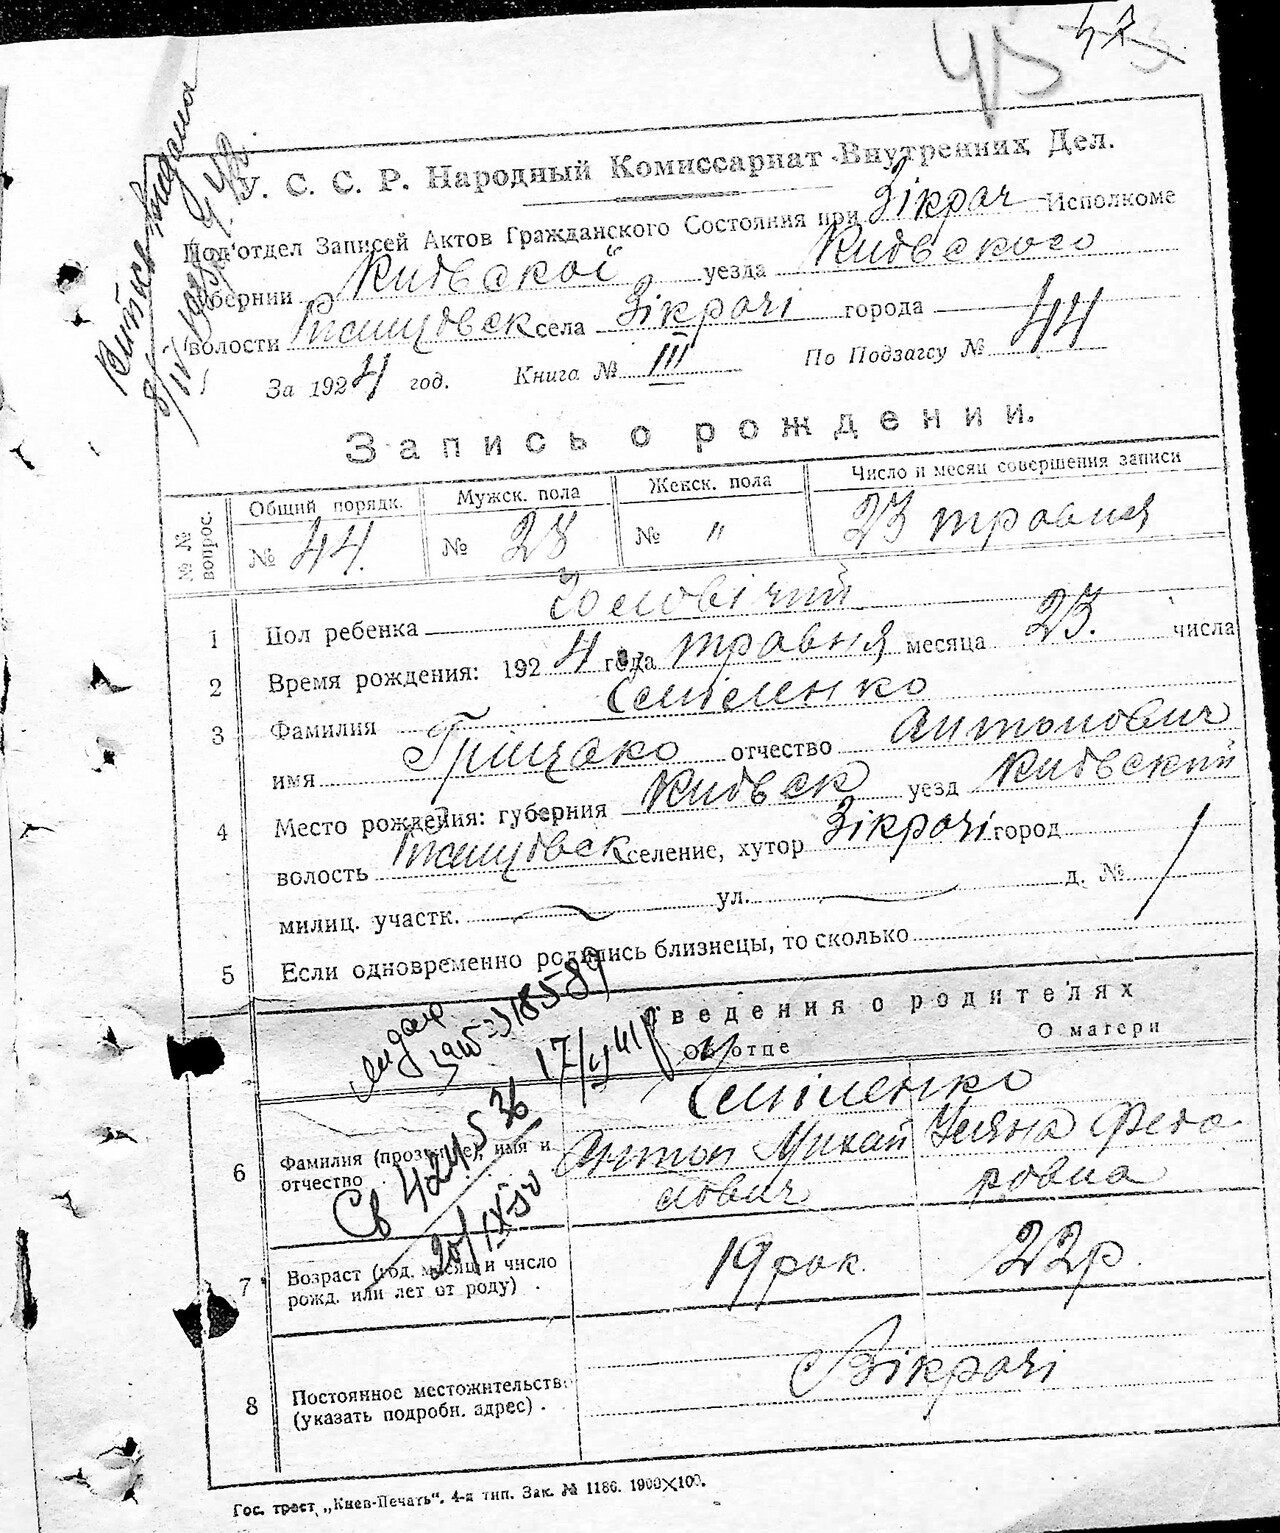 45
У. С. С. Р. Народный Комиссариат Внутренних Дел.
Под'отдел Записей Актов Гражданского Состояния при Зікрач Исполкоме
губернии Киівскоі уезда Киівского
волости села Зікрачі города
За 1924 год. Книга № III По Подзагсу № 44
Запись о рождении.
№ № вопрос. Общий порядк. Мужск. пола Женск. пола Число и месяц совершения записи
№ 44. № 28 № " 23 травня
1 Пол ребенка Чоловічий
2 Время рождения: 1924 года травня месяца 23. числа
3 Фамилия
имя Грицько отчество Антонович
4 Место рождения: губерния Киівск уезд Киівский
волость селение, хутор Зікрачі город
милиц. участк. ул. д. №
5 Если одновременно родились близнецы, то сколько
Сведения о родителях
Об отце О матери
6 Фамилия (прозвище), имя и отчество
Антон Михайлович Уляна Федоровна
7 Возраст (год, месяц и число рожд. или лет от роду) . 19 рок. 22 р.
8 Постоянное местожительство (указать подробн. адрес) . с Зікрачі
Гос. трест „Киев-Печать". 4-я тип. Зак. № 1186. 1900×100.